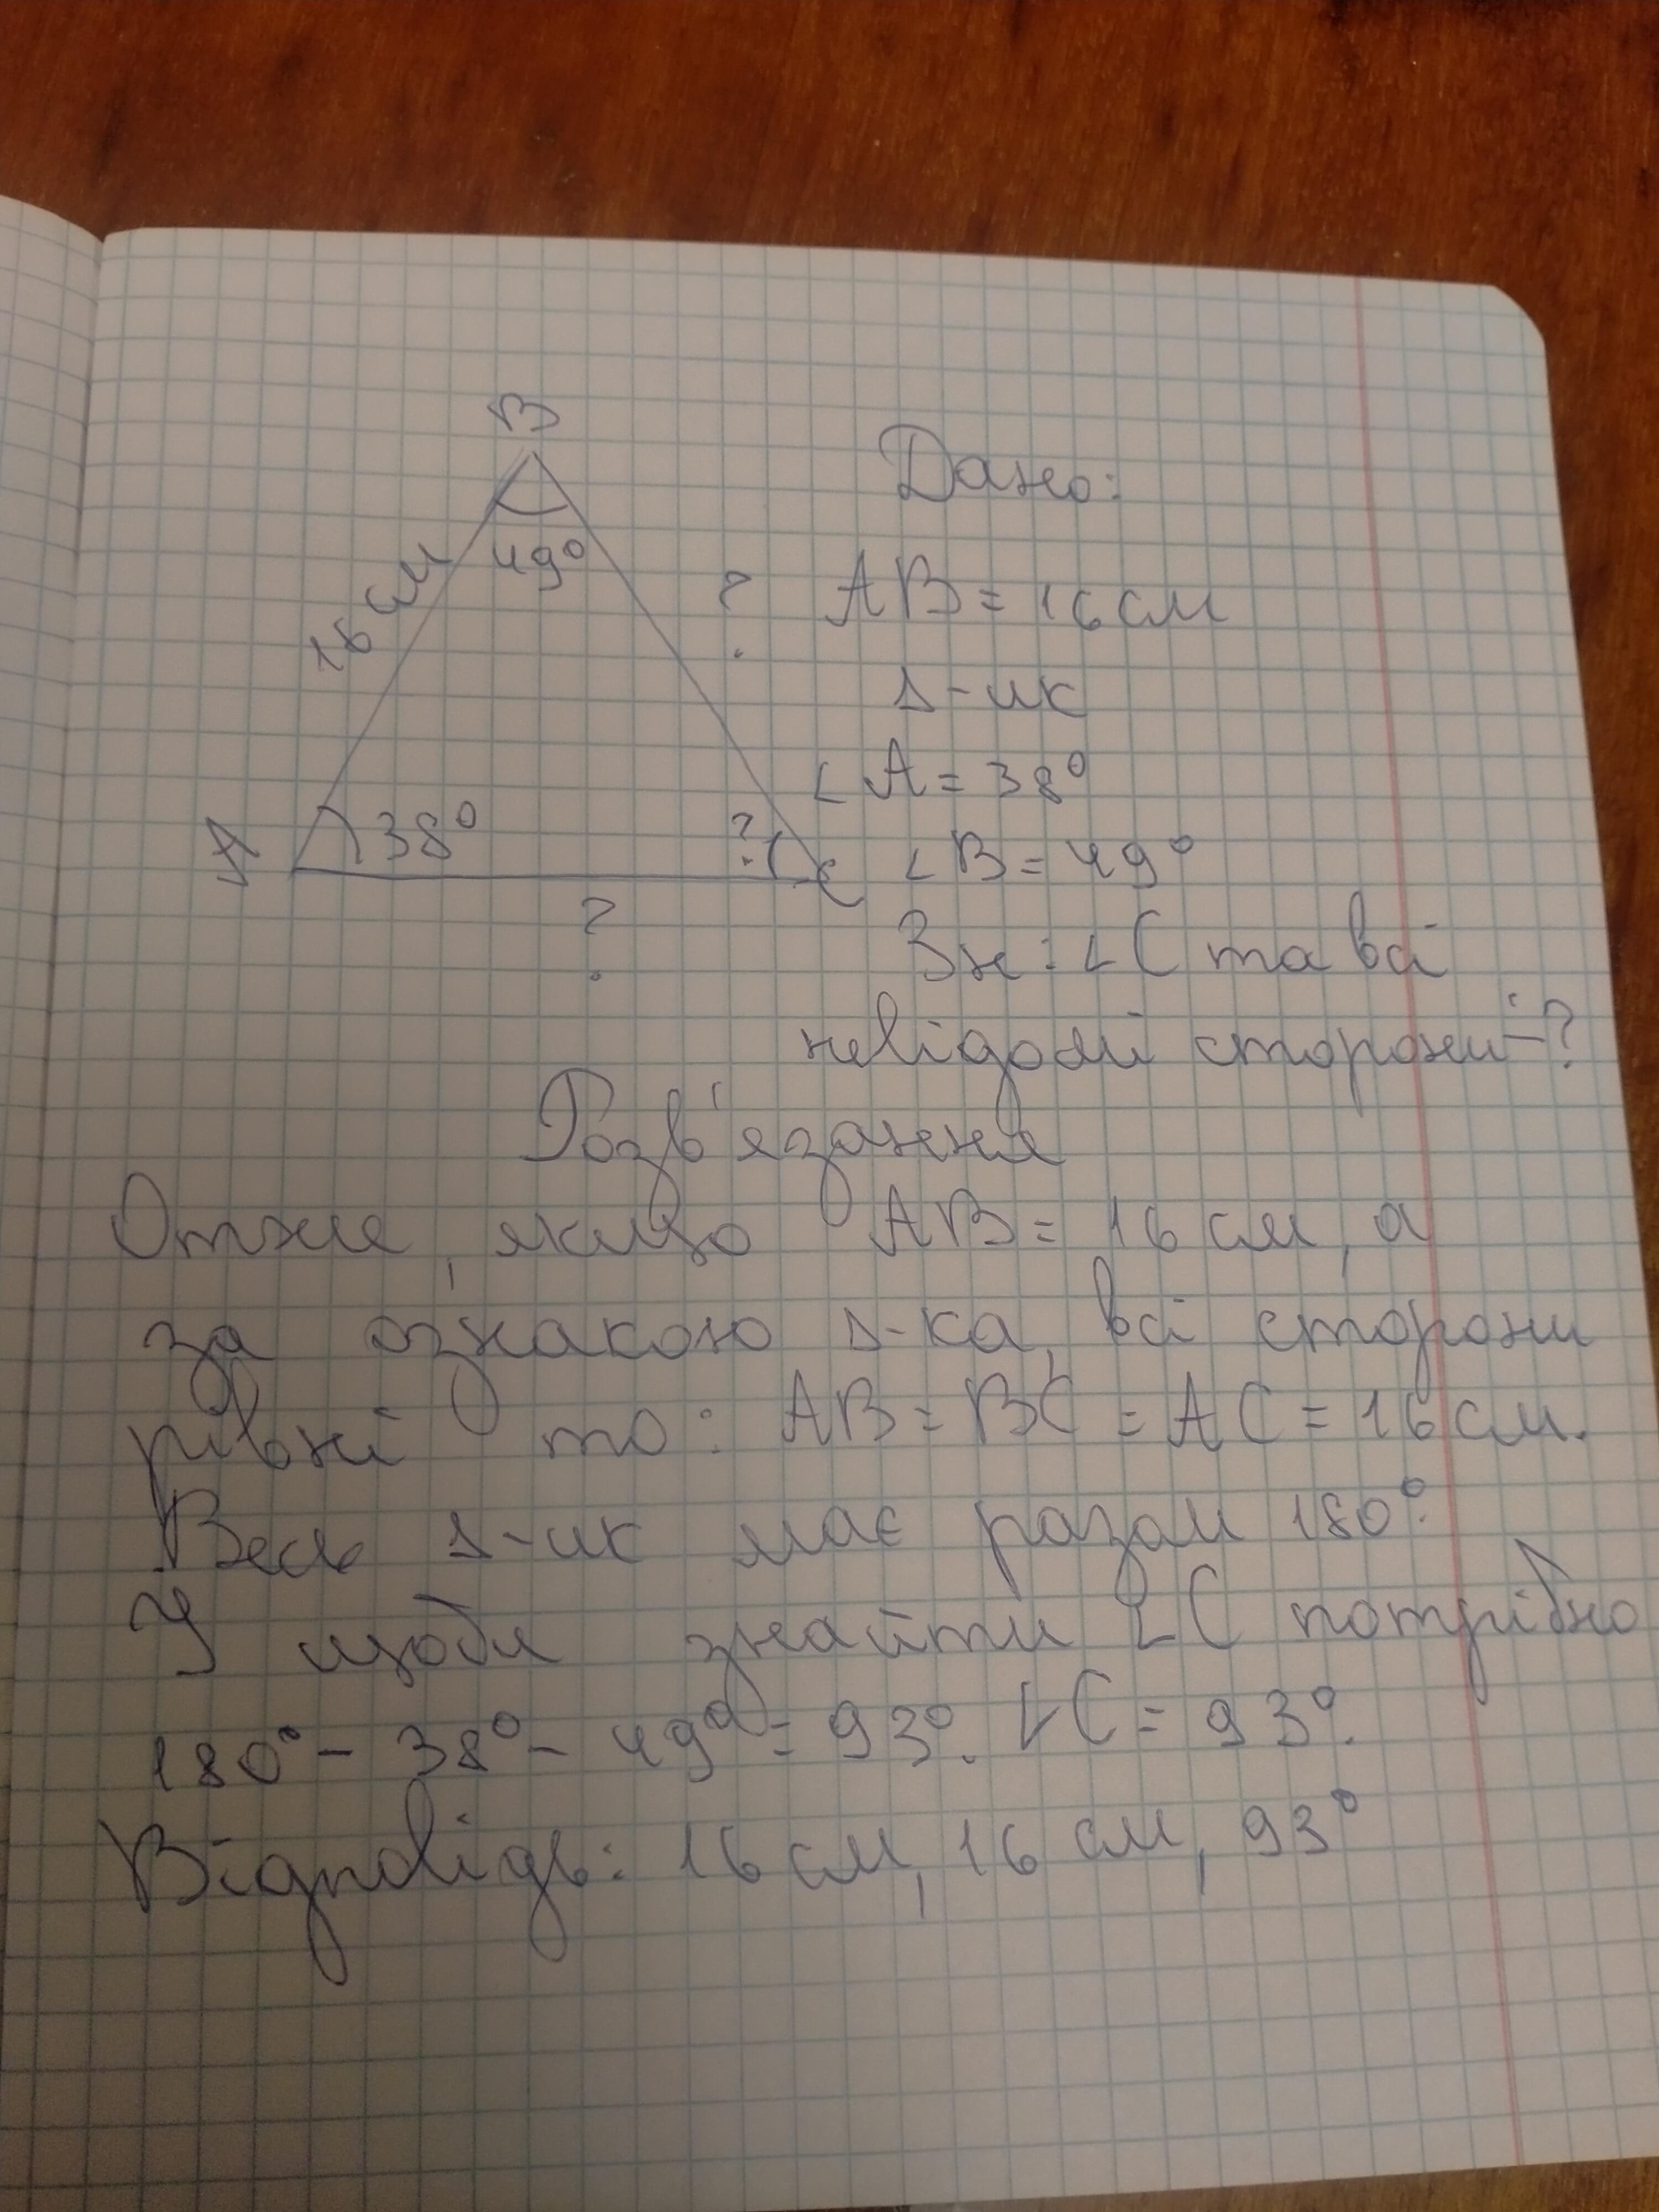 B
Дано:
49°
16 см
?
AB = 16 см
Δ-ик
∠A = 38°
A
38°
?
C
∠B = 49°
?
Зн: ∠C та всі
невідомі сторони-?
Розв'язання
Отже, якщо AB = 16 см, а
за ознакою Δ-ка, всі сторони
рівні то: AB = BC = AC = 16 см.
Весь Δ-ик має разом 180°.
І щоби знайти ∠C потрібно
180° - 38° - 49° = 93°. ∠C = 93°.
Відповідь: 16 см, 16 см, 93°